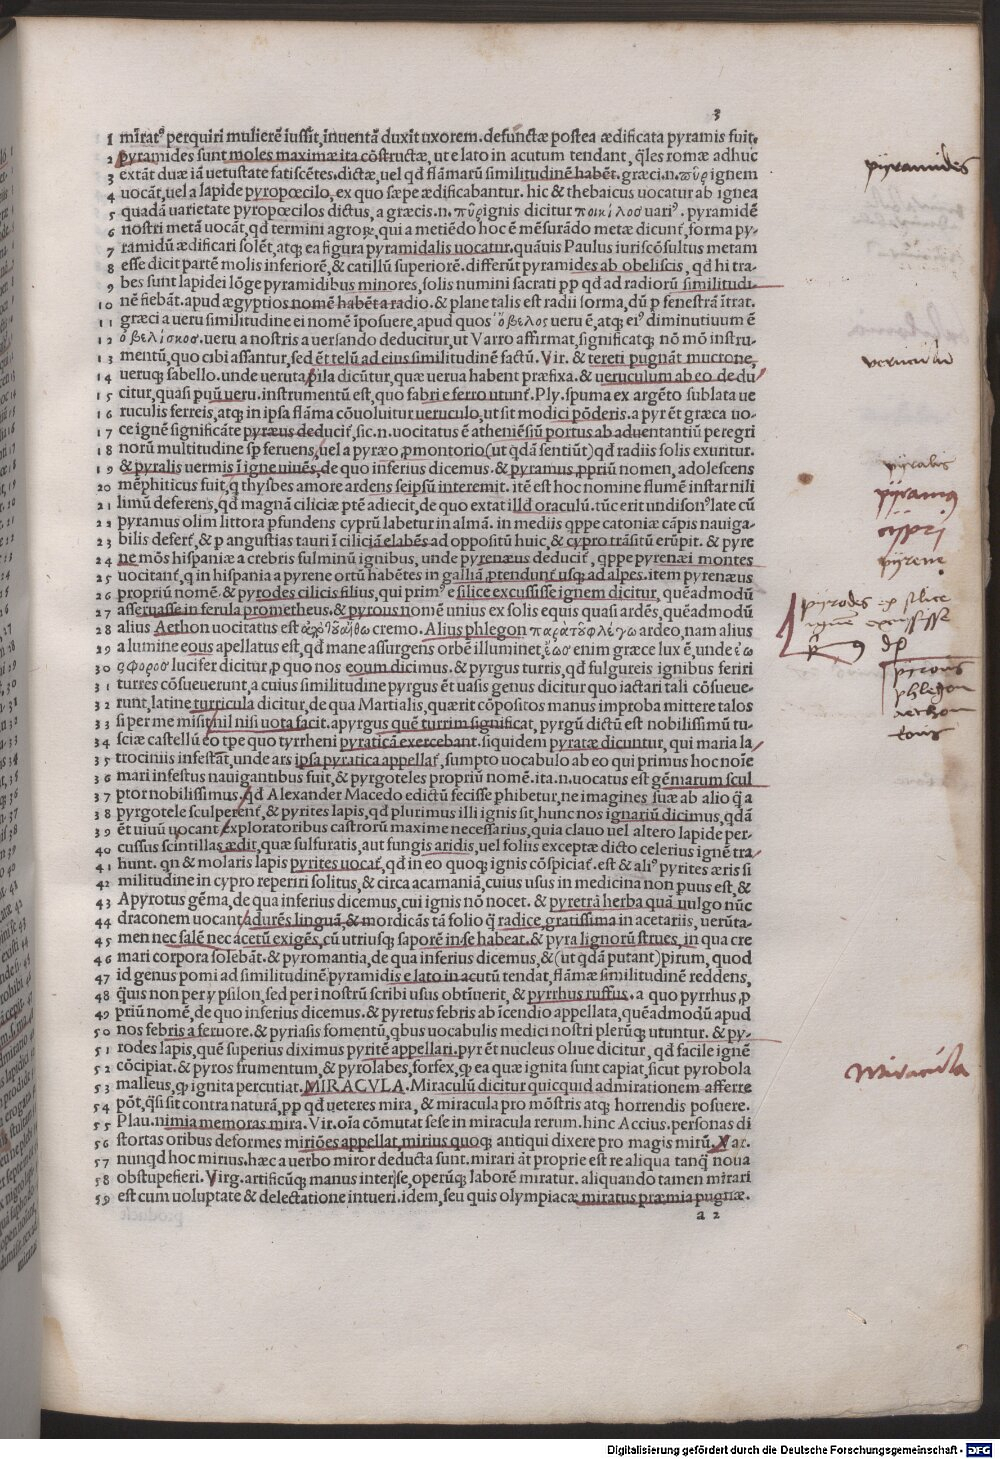 3
1 mirat⁹ perquiri mulierē iussit, inuentā duxit uxorem. defunctæ postea ædificata pyramis fuit.
2 pyramides sunt moles maximæ ita cōstructæ, ut e lato in acutum tendant, q̄les romæ adhuc
3 extāt duæ iā uetustate fatiscētes. dictæ, uel qd flāmarū similitudinē habēt. græci.n. πῦρ ignem
4 uocāt, uel a lapide pyropœcilo, ex quo sæpe ædificabantur. hic & thebaicus uocatur ab ignea
5 quadā uarietate pyropœcilos dictus, a græcis.n. πῦρ ignis dicitur ποικίλοσ uari⁹. pyramidē
6 nostri metā uocāt, qd termini agroꝝ, qui a metiēdo hoc ē mēsurādo metæ dicunt̄, forma py-
7 ramidū ædificari solēt, atqꝫ ea figura pyramidalis uocatur. quāuis Paulus iuriscōsultus metam
8 esse dicit partē molis inferiorē, & catillū superiorē. differūt pyramides ab obeliscis, qd hi tra-
9 bes sunt lapidei lōge pyramidibus minores, solis numini sacrati pp qd ad radiorū similitudi-
10 nē fiebāt. apud ægyptios nomē habēt a radio. & plane talis est radii forma, dū p fenestrā ītrat.
11 græci a ueru similitudine ei nomē īposuere, apud quos ὄβελος ueru ē, atqꝫ ei⁹ diminutiuum ē
12 ὀβελίσκοσ. ueru a nostris a uersando deducitur, ut Varro affirmat, significatqꝫ nō mō instru-
13 mentū, quo cibi assantur, sed ēt telū ad eius similitudinē factū. Vir. & tereti pugnāt mucrone,
14 ueruqꝫ sabello. unde ueruta pila dicūtur, quæ uerua habent præfixa. & ueruculum ab eo dedu
15 citur, quasi puū ueru. instrumentū est, quo fabri e ferro utunt̄. Ply. spuma ex argēto sublata ue
16 ruculis ferreis, atqꝫ in ipsa flāma cōuoluitur ueruculo, ut sit modici pōderis. a pyr ēt græca uo-
17 ce ignē significāte pyræus deducit̄, sic.n. uocitatus ē atheniēsiū portus ab aduentantiū peregri
18 norū multitudine sp feruens, uel a pyræo ꝓmontorio (ut qdā sentiūt) qd radiis solis exuritur.
19 & pyralis uermis ī igne uiuēs, de quo inferius dicemus. & pyramus ꝓpriū nomen, adolescens
20 mēphiticus fuit, q thysbes amore ardens seipsū interemit. itē est hoc nomine flumē instar nili
21 limū deferens, qd magnā ciliciæ ptē adiecit, de quo extat illd oraculū. tūc erit undison⁹ late cū
22 pyramus olim littora pfundens cyprū labetur in almā. in mediis qppe catoniæ cāpis nauiga-
23 bilis defert̄, & p angustias tauri ī ciliciā elabēs ad oppositū huic, & cypro trāsitū erūpit. & pyre
24 ne mōs hispaniæ a crebris fulminū ignibus, unde pyrenæus deducit̄, qppe pyrenæi montes
25 uocitant̄, q in hispania a pyrene ortū habētes in galliā ꝓtendunt̄ usqꝫ ad alpes. item pyrenæus
26 propriū nomē. & pyrodes cilicis filius, qui prim⁹ e silice excussisse ignem dicitur, quēadmodū
27 asseruasse in ferula prometheus. & pyrous nomē unius ex solis equis quasi ardēs, quēadmodū
28 alius Aethon uocitatus est cremo. Alius phlegon παρὰ τὸ φλέγω ardeo, nam alius
29 a lumine eous apellatus est, qd mane assurgens orbē illuminet, ἕωσ enim græce lux ē, unde ἑω
30 σφοροσ lucifer dicitur, ꝓ quo nos eoum dicimus. & pyrgus turris, qd fulgureis ignibus feriri
31 turres cōsueuerunt, a cuius similitudine pyrgus ēt uasis genus dicitur quo iactari tali cōsueue-
32 runt, latine turricula dicitur, de qua Martialis, quærit cōpositos manus improba mittere talos
33 si per me misit, nil nisi uota facit. a pyrgus quē turrim significat, pyrgū dictū est nobilissimū tu-
34 sciæ castellū eo tpe quo tyrrheni pyraticā exercebant. siquidem pyratæ dicuntur, qui maria la
35 trociniis infestāt, unde ars ipsa pyratica appellat̄, sumpto uocabulo ab eo qui primus hoc noīe
36 mari infestus nauigantibus fuit, & pyrgoteles propriū nomē. ita.n. uocatus est gēmarum scul
37 ptor nobilissimus. Qd Alexander Macedo edictū fecisse phibetur, ne imagines suæ ab alio q̄ a
38 pyrgotele sculperent̄, & pyrites lapis, qd plurimus illi ignis sit, hunc nos ignariū dicimus, qdā
39 ēt uiuū uocant exploratoribus castrorū maxime necessarius, quia clauo uel altero lapide per-
40 cussus scintillas ædit, quæ sulfuratis, aut fungis aridis, uel foliis exceptæ dicto celerius ignē tra
41 hunt. qn & molaris lapis pyrites uocat̄, qd in eo quoqꝫ ignis cōspiciat̄. est & ali⁹ pyrites æris si
42 militudine in cypro reperiri solitus, & circa acarnaniā, cuius usus in medicina non puus est, &
43 Apyrotus gēma, de qua inferius dicemus, cui ignis nō nocet. & pyretrā herba quā uulgo nūc
44 draconem uocant, adurēs linguā, & mordicās tā folio q̄ radice, gratissima in acetariis, uerūta-
45 men nec salē nec acetū exigēs, cū utriusqꝫ saporē in se habeat. & pyra lignorū strues, in qua cre
46 mari corpora solebāt. & pyromantia, de qua inferius dicemus, & (ut qdā putant) pirum, quod
47 id genus pomi ad similitudinē pyramidis e lato in acutū tendat, flāmæ similitudinē reddens,
48 quis non per y psilon, sed per i nostrū scribi usus obtinuerit, & pyrrhus ruffus. a quo pyrrhus, ꝓ
49 priū nomē, de quo inferius dicemus. & pyretus febris ab īcendio appellata, quēadmodū apud
50 nos febris a feruore. & pyriasis fomentū, qbus uocabulis medici nostri plerūqꝫ utuntur. & py-
51 rodes lapis, quē superius diximus pyritē appellari. pyr ēt nucleus oliue dicitur, qd facile ignē
52 cōcipiat. & pyros frumentum, & pyrolabes, forfex, ꝙ ea quæ ignita sunt capiat, sicut pyrobola
53 malleus, ꝙ ignita percutiat. MIRACVLA. Miraculū dicitur quicquid admirationem afferre
54 pōt, q̄si sit contra naturā, pp qd ueteres mira, & miracula pro mōstris atqꝫ horrendis posuere.
55 Plau. nimia memoras mira. Vir. oīa cōmutat sese in miracula rerum. hinc Accius. personas di
56 stortas oribus deformes miriōes appellat, mirius quoqꝫ antiqui dixere pro magis mirū. Var.
57 nunqd hoc mirius. hæc a uerbo miror deducta sunt. mirari āt proprie est re aliqua tanq̄ noua
58 obstupefieri. Virg. artificūqꝫ manus inter se, operūqꝫ laborē miratur. aliquando tamen mirari
59 est cum uoluptate & delectatione intueri. idem, seu quis olympiacæ miratus præmia pugnæ.
a 2
pyramides
veruculū
pyralis
pyramꝰ
cypri
pyrene
pyrodes ex silice
ignē excussisse
pyrous
phlegon
aethon
eous
Miracula
Digitalisierung gefördert durch die Deutsche Forschungsgemeinschaft - DFG